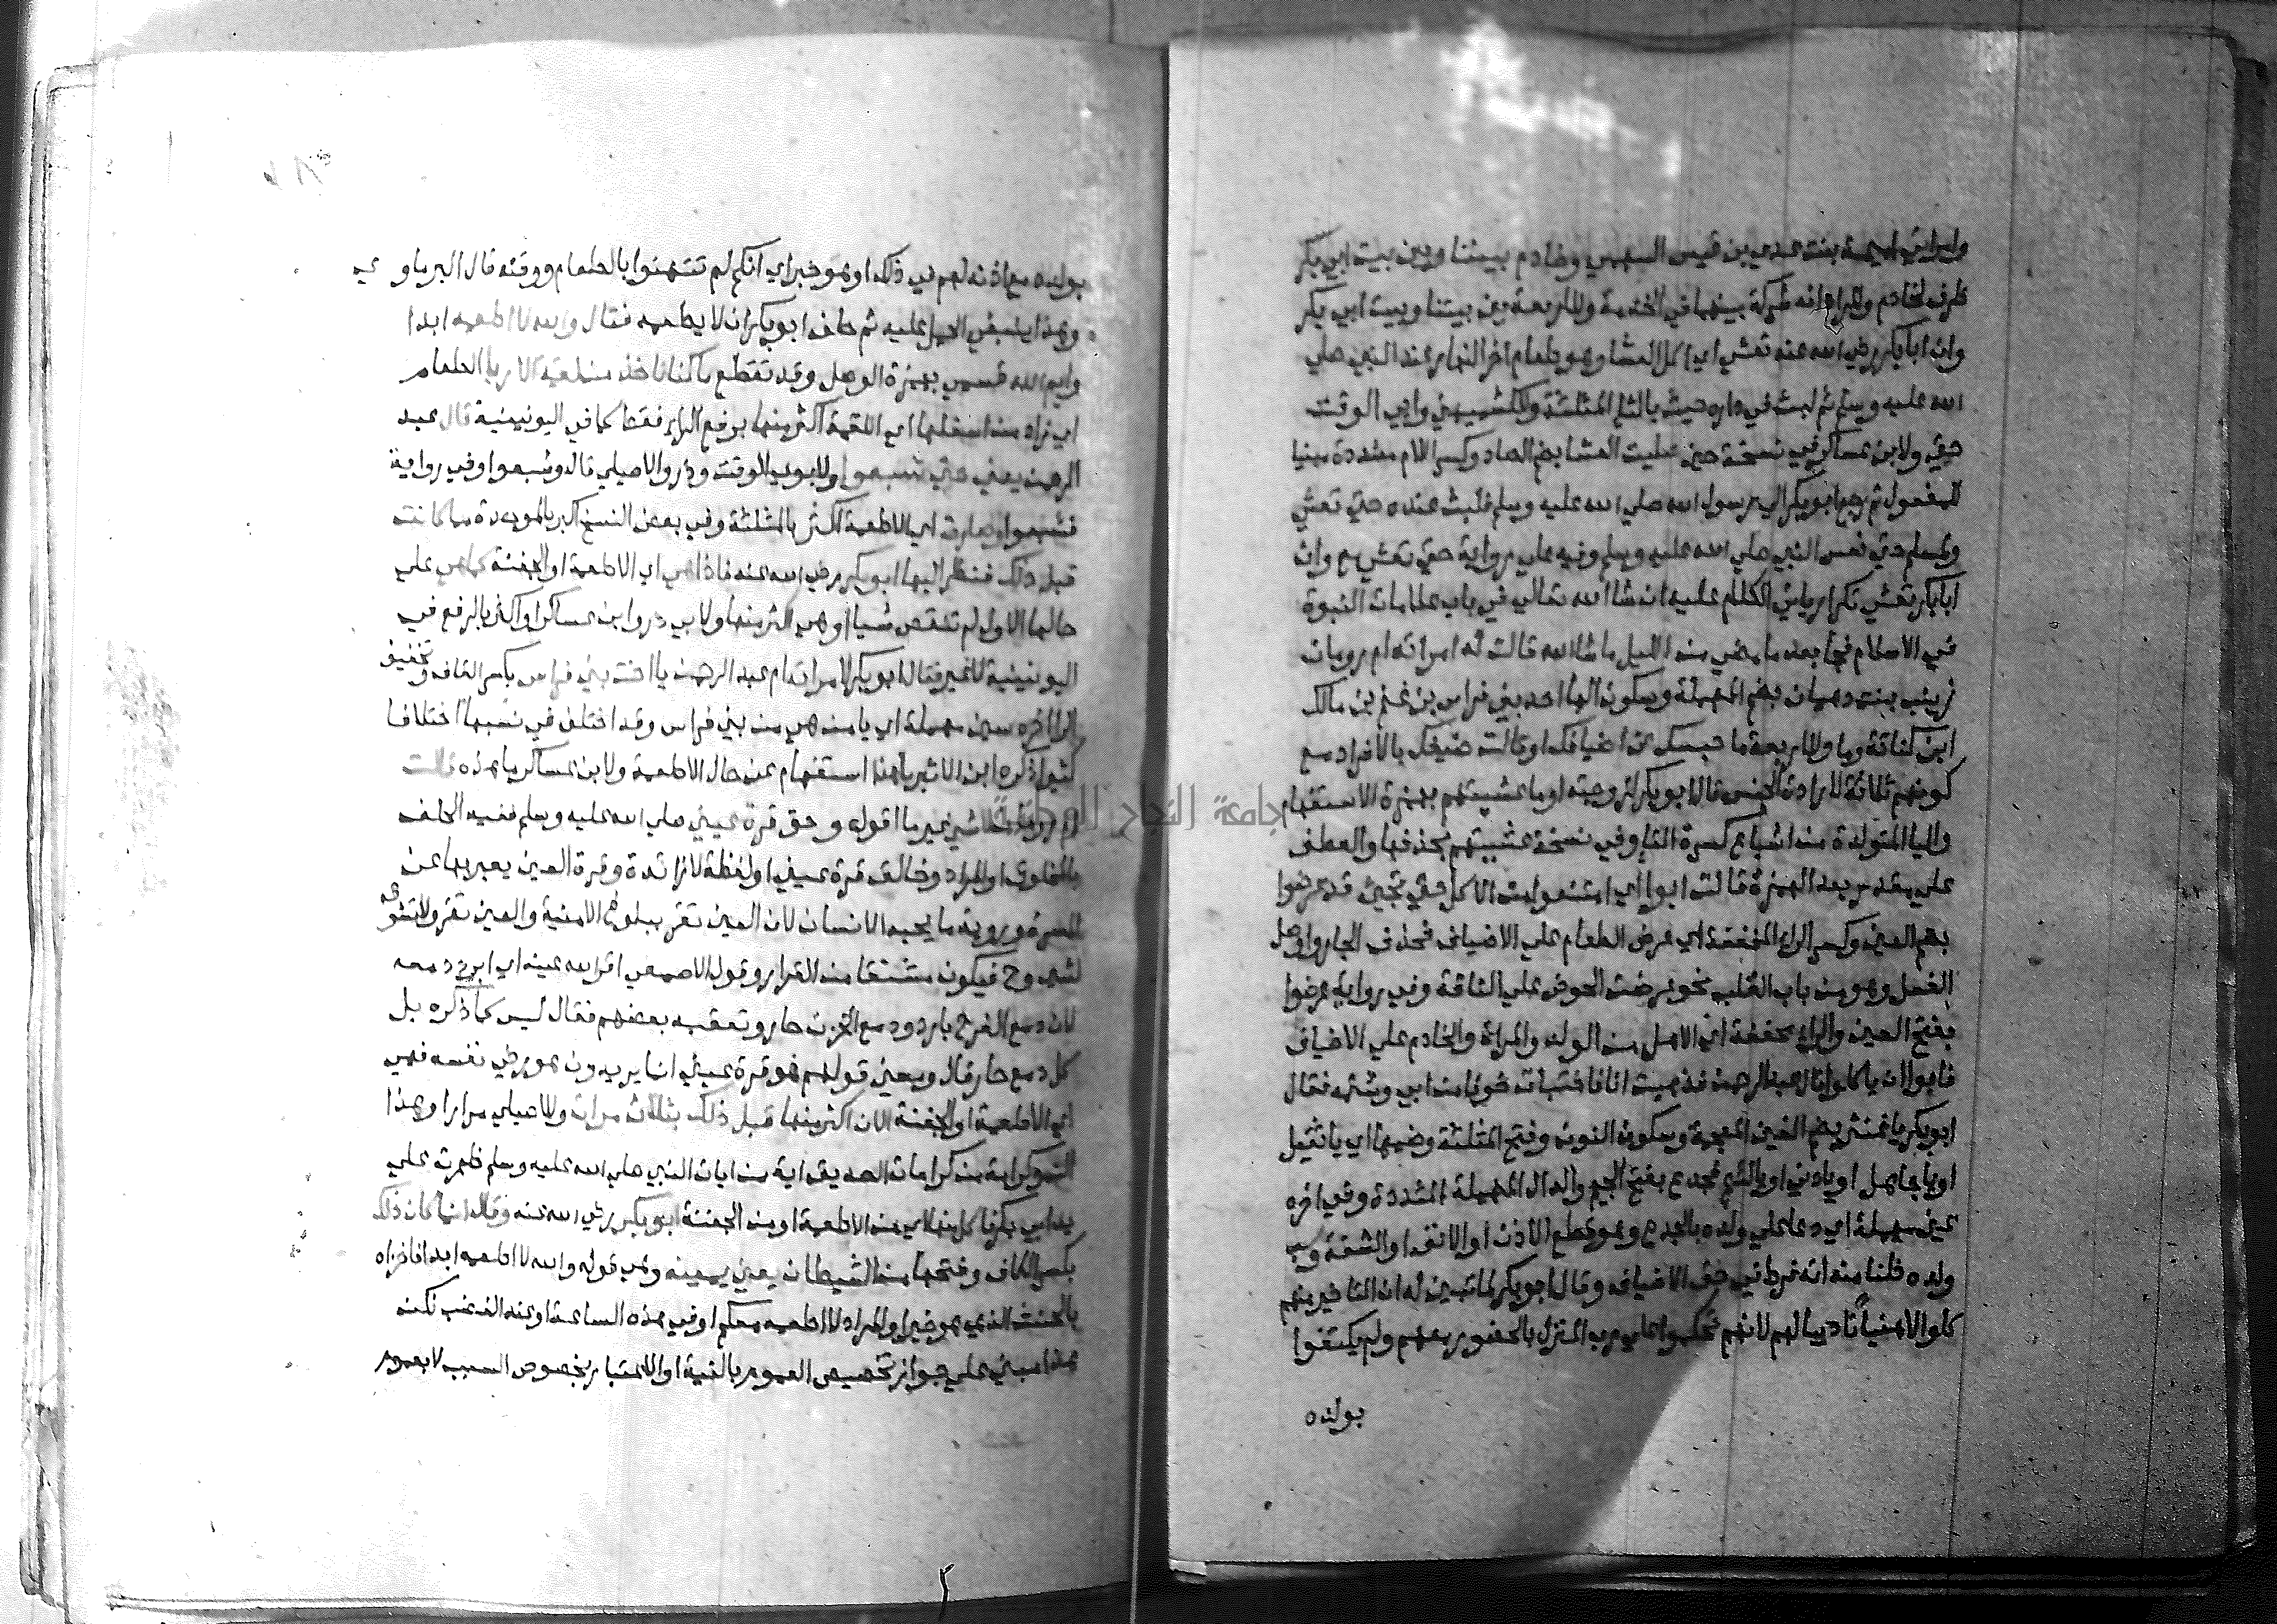 وامراتي اميمة بنت عدي بن قيس السهمي وخادم بيننا وبين بيت ابي بكر
ظرف لخادم والمراد انه شركة بينهما في الخدمة وللاربعة بين بيتنا وبيت ابي بكر
وان ابا بكر رضي الله عنه تعشي اي اكل العشا وهو طعام اخر النهار عند النبي صلي
الله عليه وسلم ثم لبث في داره حيث بالثا المثلثة وللكشميهني وابي الوقت
حتي ولابن عساكر في نسخة حين صليت العشا بضم الصاد وكسر اللام مشددة مبنيا
للمفعول ثم رجع ابو بكر الي رسول الله صلي الله عليه وسلم فلبث عنده حتي تعشي
ولمسلم حتي نعس النبي صلي الله عليه وسلم وفيه علي رواية حتي تعشي مع وان
ابا بكر تعشي تكرار ياتي الكلام عليه ان شا الله تعالي في باب علامات النبوة
في الاسلام فجا بعد ما مضي من الليل ما شا الله قالت له امراته ام رومان
زينب بنت دهمان بضم المهملة وسكون الها احد بني فراس بن غنم بن مالك
ابن كنانة وما وللاربعة ما حبسك عن اضيافك او قالت ضيفك بالافراد مع
كونهم ثلاثة لارادة الجنس قال ابو بكر لزوجته اوما عشيتهم بهمزة الاستفهام
واليا المتولدة من اشباع كسرة التا وفي نسخة عشيتهم بحذفها والعطف
علي مقدر بعد الهمزة قالت ابوا اي امتنعوا من الاكل حتي تجئ قد عرضوا
بضم العين وكسر الراء المخففة اي عرض الطعام علي الاضياف فحذف الجار واوصل
الفعل وهو من باب القلب نحو عرضت الحوض علي الناقة وفي رواية عرضوا
بفتح العين والراء مخففة اي الاهل من الولد والمراة والخادم علي الاضياف
فابوا ان ياكلوا قال عبد الرحمن فذهبت انا فاختبات خوفا من ابي وشتمه فقال
ابو بكر يا غنثر بضم الغين المعجمة وسكون النون وفتح المثلثة وضمها اي يا ثقيل
او يا جاهل او يا دني او يا لئيم فجدع بفتح الجيم والدال المهملة المشددة وفي اخره
عين مهملة اي دعا علي ولده بالجدع وهو قطع الاذن او الانف او الشفة وسب
ولده ظنا منه انه فرط في حق الاضياف وقال ابو بكر لما تبين له ان التاخير منهم
كلوا لا هنيأ تاديبا لهم لانهم تحكموا علي رب المنزل بالحضور معهم ولم يكتفوا
بولده
بولده مع اذنه لهم في ذلك او هو خبر اي انكم لم تتهنوا بالطعام ووقته قال البرماوي
وهذا ينبغي الحمل عليه ثم حلف ابو بكر ان لا يطعمه فقال والله لا اطعمه ابدا
وايم الله قسمي بهمزة الوصل وقد تقطع ما كنا ناخذ من لقمة الا ربا الطعام
اي زاد من اسفلها اي اللقمة اكثر منها برفع الراء فقط كما في اليونينية قال عبد
الرحمن يعني حتي شبعوا ولابوي الوقت وذر والاصيلي قال وشبعوا وفي رواية
فشبعوا وصارت اي الاطعمة اكثر بالمثلثة وفي بعض النسخ اكبر بالموحدة مما كانت
قبل ذلك فنظر اليها ابو بكر رضي الله عنه فاذا هي اي الاطعمة او الجفنة كما هي علي
حالها الاول لم تنقص شيا او هي اكثر منها ولابي ذر وابن عساكر او اكثر بالرفع في
اليونينية لا غير فقال ابو بكر لامراته ام عبد الرحمن يا اخت بني فراس بكسر الفا وتخفيف
الرا اخره سين مهملة اي يا من هي من بني فراس وقد اختلف في نسبها اختلافا
كثيرا ذكره ابن الاثير ما هذا استفهام عن حال الاطعمة ولابن عساكر ما هذه قالت
ام رومان لا شئ غير ما اقول وحق قرة عيني صلي الله عليه وسلم ففيه الحلف
بالمخلوق او المراد وخالق قرة عيني او لفظة لا زائدة وقرة العين يعبر بها عن
المسرة ورؤية ما يحبه الانسان لان العين تقر ببلوغ الامنية والعين تقر ولا تتشوف
لشئ وح فيكون مشتقا من القرار وقول الاصمعي اقر الله عينه اي ابرد دمعه
لان دمع الفرح بارد ودمع الحزن حار وتعقبه بعضهم فقال ليس كما ذكره بل
كل دمع حار قال ومعني قولهم هو قرة عيني انما يريدون هو رضي نفسه لهي
اي الاطعمة او الجفنة الان اكثر منها قبل ذلك بثلاث مرات وللاصيلي مرارا وهذا
النمو كرامة من كرامات الصديق اية من ايات النبي صلي الله عليه وسلم ظهرت علي
يد ابي بكر فاكل منها اي من الاطعمة او من الجفنة ابو بكر رضي الله عنه وقال انما كان ذلك
بكسر الكاف وفتحها من الشيطان يعني يمينه وهي قوله والله لا اطعمه ابدا فاخزاه
بالحنث الذي هو خير او المراد لا اطعمه معكم او في هذه الساعة او عند الغضب لكن
هذا مبني علي جواز تخصيص العموم بالنية او الاعتبار بخصوص السبب لا بعموم
جامعة النجاح الوطنية